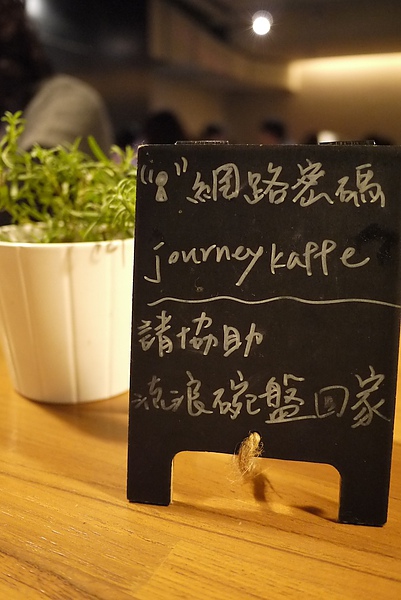 網路密碼
journeykaffe
請協助
流浪碗盤回家